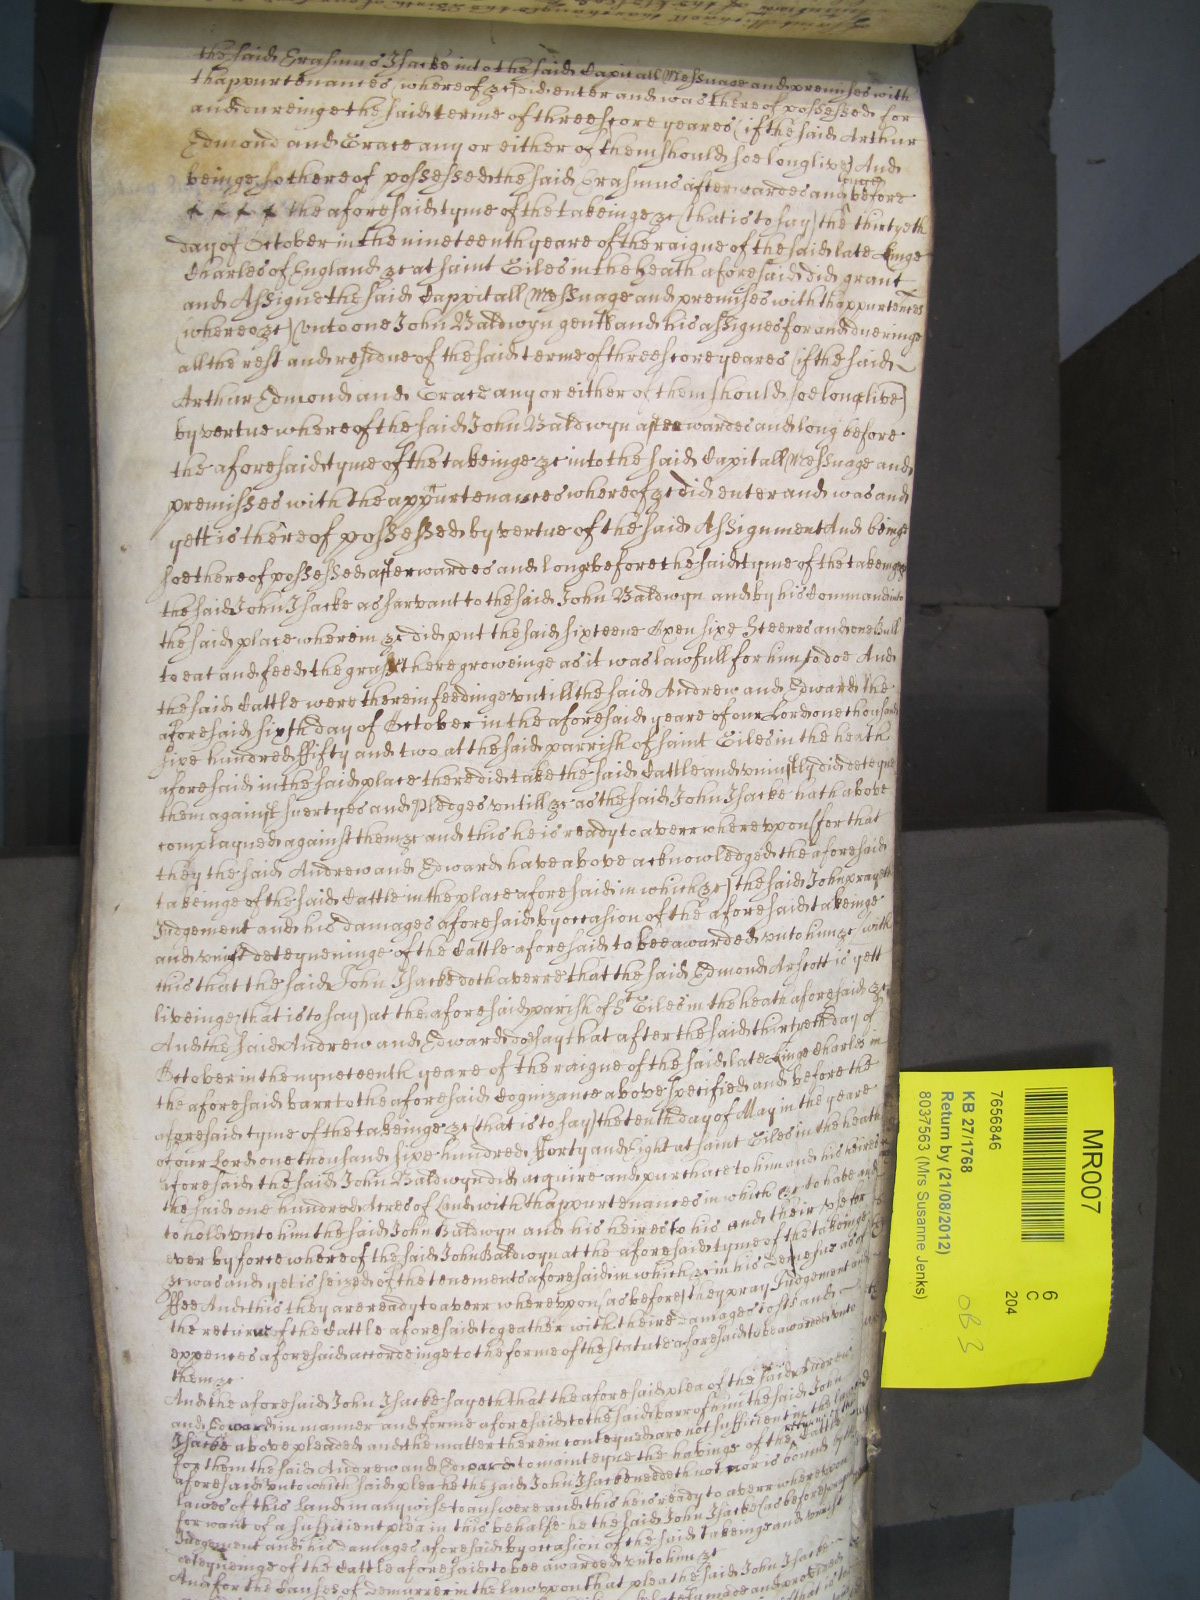 the said Erasmus Isacke into the said Capitall Messuage and premises with
thappurtenances (whereof &c) did enter and was thereof possessed for
and dureinge the said terme of threescore yeares (if the said Arthur
Edmond and Grace any or either of them should soe long live) And
beinge so thereof possessed the said Erasmus afterwardes and longe before
the aforesaid tyme of the takeinge &c (that is to say) the thirtyeth
day of October in the nineteenth yeare of the raigne of the said late Kinge
Charles of England &c at saint Giles in the Heath aforesaid did grant
and Assigne the said Cappitall Messuage and premises with thappurtences
(whereo &c) unto one John Baldwyn gent and his assignes for and dueringe
all the rest and residue of the said terme of threescore yeares (if the said
Arthur Edmond and Grace any or either of them should soe long live)
by vertue whereof the said John Baldwyn afterwardes and long before
the aforesaid tyme of the takeinge &c into the said Capitall Messuage and
premisses with the appurtenances whereof &c did enter and was and
yett is thereof possessed by vertue of the said Assignment And beinge
soe thereof possessed afterwardes and long before the said tyme of the takeinge
the said John Isacke as sarvant to the said John Baldwyn and by his Command into
the said place wherein &c did put the said sixteene Oxen sixe Steeres and one Bull
to eat and feed the grass there groweinge as it was lawfull for him to doe And
the said Cattle were therein feedinge untill the said Andrew and Edward the
aforesaid sixth day of October in the aforesaid yeare of our Lord one thousand
sixe hundred ffifty and two at the said parrish of saint Giles in the heath
aforesaid in the said place there did take the said Cattle and uniustly did deteyne
them against suertyes and pledges untill &c as the said John Isacke hath above
complayned against them &c and this he is ready to averr whereupon (for that
they the said Andrew and Edward have above acknowledged the aforesaid
takeinge of the said Cattle in the place aforesaid in which &c) the said John prayeth
Judgement and his damages aforesaid by occasion of the aforesaid takeinge
and uniust deteyneinge of the Cattle aforesaid to bee awarded unto him &c with
this that the said John Isacke doth averre that the said Edmond Arscott is yett
liveinge (that is to say) at the aforesaid parish of St Giles in the heath aforesaid &c
And the said Andrew and Edward doe say that after the said thirtyeth day of
October in the nyneteenth yeare of the raigne of the said late Kinge Charles in
the aforesaid barr to the aforesaid Cognizance above specified and before the
aforesaid tyme of the takeinge &c (that is to say) the tenth day of May in the yeare
of our Lord one thousand sixe hundred fforty and Eight at saint Giles in the heath
aforesaid the said John Baldwyn did acquire and purchace to him and his heires
the said one hundred Acres of Land with thappurtenances in which &c to have and
to hold unto him the said John Baldwyn and his heires to his and their use for
ever by force whereof the said John Baldwyn at the aforesaid tyme of the takeinge
&c was and yet is seized of the tenements aforesaid in which &c in his Demesne as of
ffee And this they are ready to averr whereupon (as before) they pray Judgement and
the returne of the Cattle aforesaid togeather with theire damages costs and
expences aforesaid accordeinge to the forme of the statute aforesaid to be awarded unto
them &c
And the aforesaid John Isacke sayeth that the aforesaid plea of the said Andrew
and Edward in manner and forme aforesaid to the said barr of him the said John
Isacke above pleaded and the matter therein conteyned are not sufficient in the law
for them the said Andrew and Edward to mainteyne the haveing of the returne of the Cattle
aforesaid unto which said plea he the said John Isacke needeth not nor is bound by the
lawes of this Land in any wise to answere and this he is ready to averr whereupon
for want of a sufficient plea in this behalfe he the said John Isacke (as before) prayeth
Judgement and his damages aforesaid by occasion of the said takeinge and uniust
deteyneinge of the Cattle aforesaid to bee awarded unto him &c
And for the Causes of demurrer in the law upon that plea the said John Isacke
MR007
7656846
KB 27/1768
Return by (21/08/2012)
8037563 (Mrs Susanne Jenks)
6
C
204
OB 3